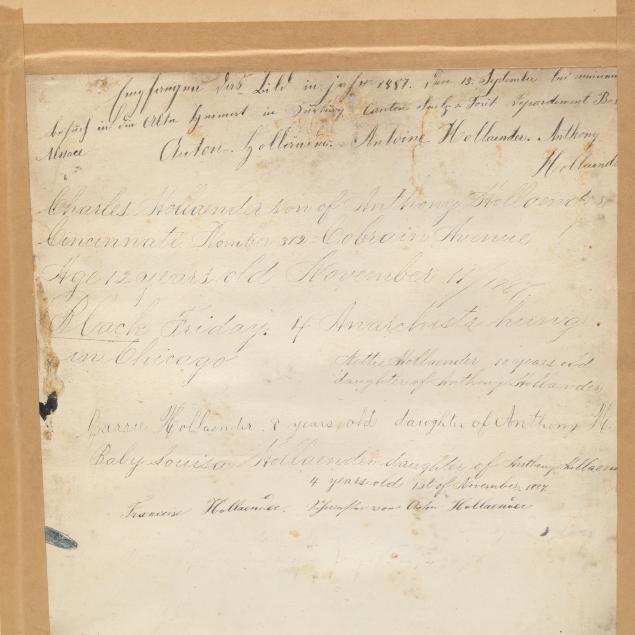 Empfangen das Bild in jahr 1887. den 13. September bei meinem
besuch in die Alte Heimat in Canton Sulz Forêt Departement
Alsace Anton Antoine Hollaender. Anthony
Hollaende
Charles Hollaender son of Anthony Hollaender
Cincinnati Number 372 Colerain Avenue
Age 12 years old November 11 1887
Black Friday. 4 Anarchists hung
in Chicago
Nettie Hollaender 10 years old
daughter of Anthony Hollaender
Hollaender. 8 years old daughter of Anthony H
Baby Louisa Hollaender daughter of Anthony Hollaen
4 years old 1st of November 1887
Hollaender. von Anton Hollaender